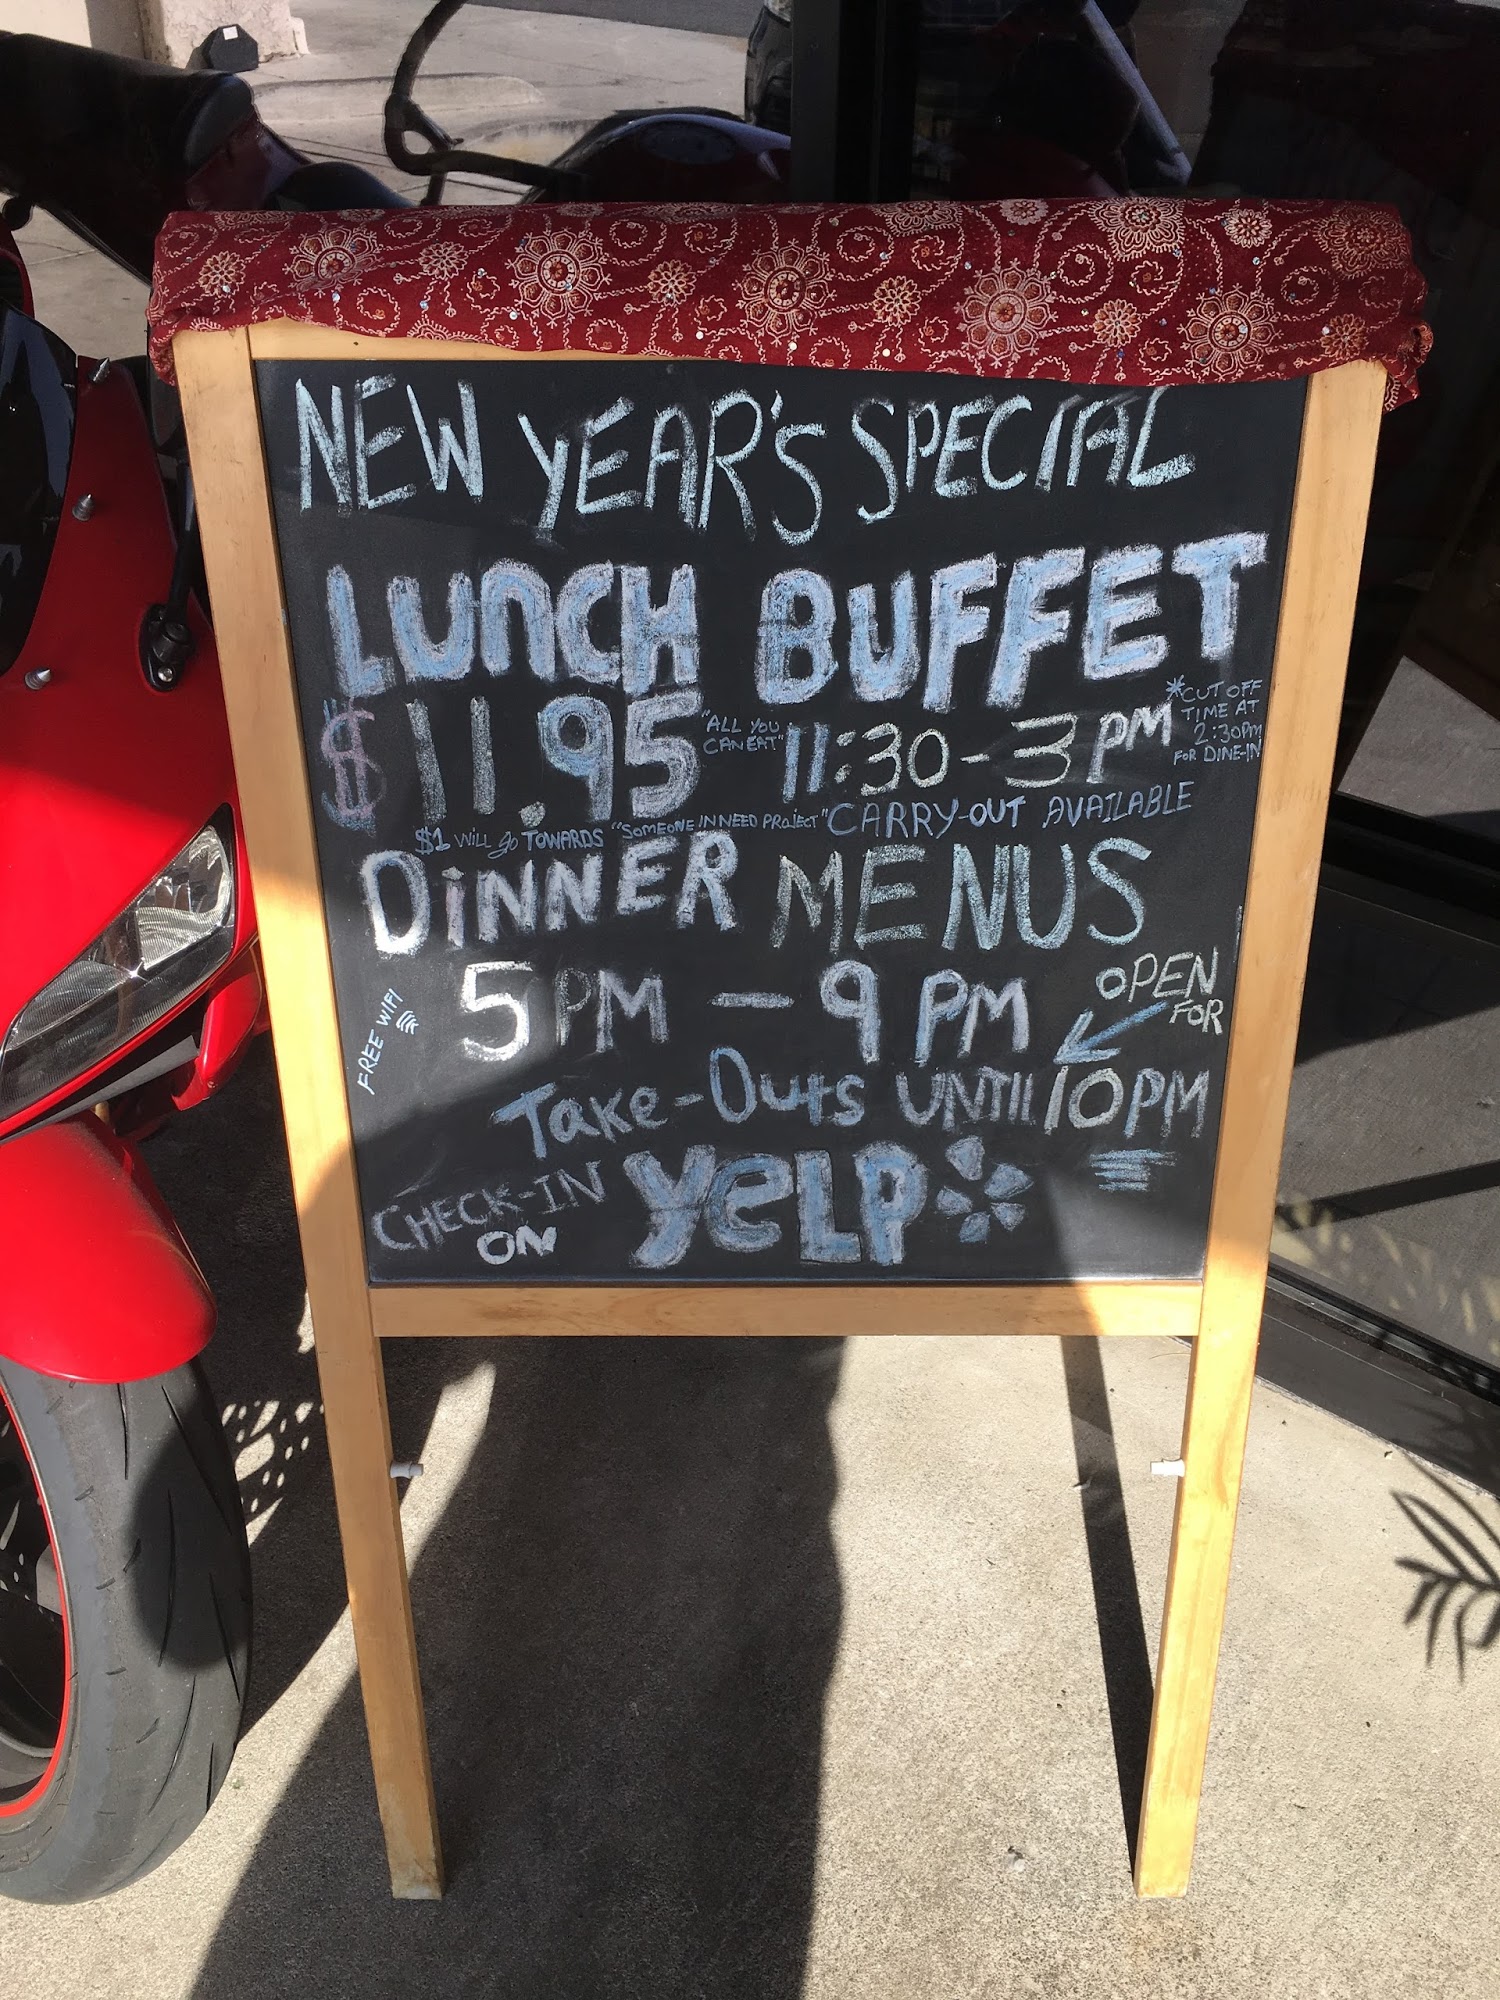 NEW YEAR'S SPECIAL
LUNCH BUFFET
$11.95 "ALL YOU
CAN EAT" 11:30-3PM
*CUT OFF
TIME AT
2:30PM
FOR DINE-IN
$1 WILL go TOWARDS "SOMEONE IN NEED PROJECT"
CARRY-OUT AVAILABLE
DiNNER MENUS
5PM - 9PM
OPEN
FOR
FREE WIFI
Take-Outs UNTIL 10PM
CHECK-IN
ON
yeLP